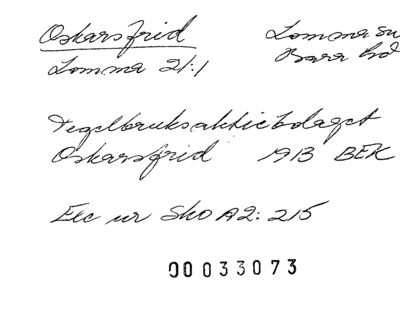 Oskarsfrid Lomma sn
Lomma 21:1 Bara hd
Tegelbruksaktiebolaget
Oskarsfrid 1913 BEK
Exc ur Sko A2: 215
00033073